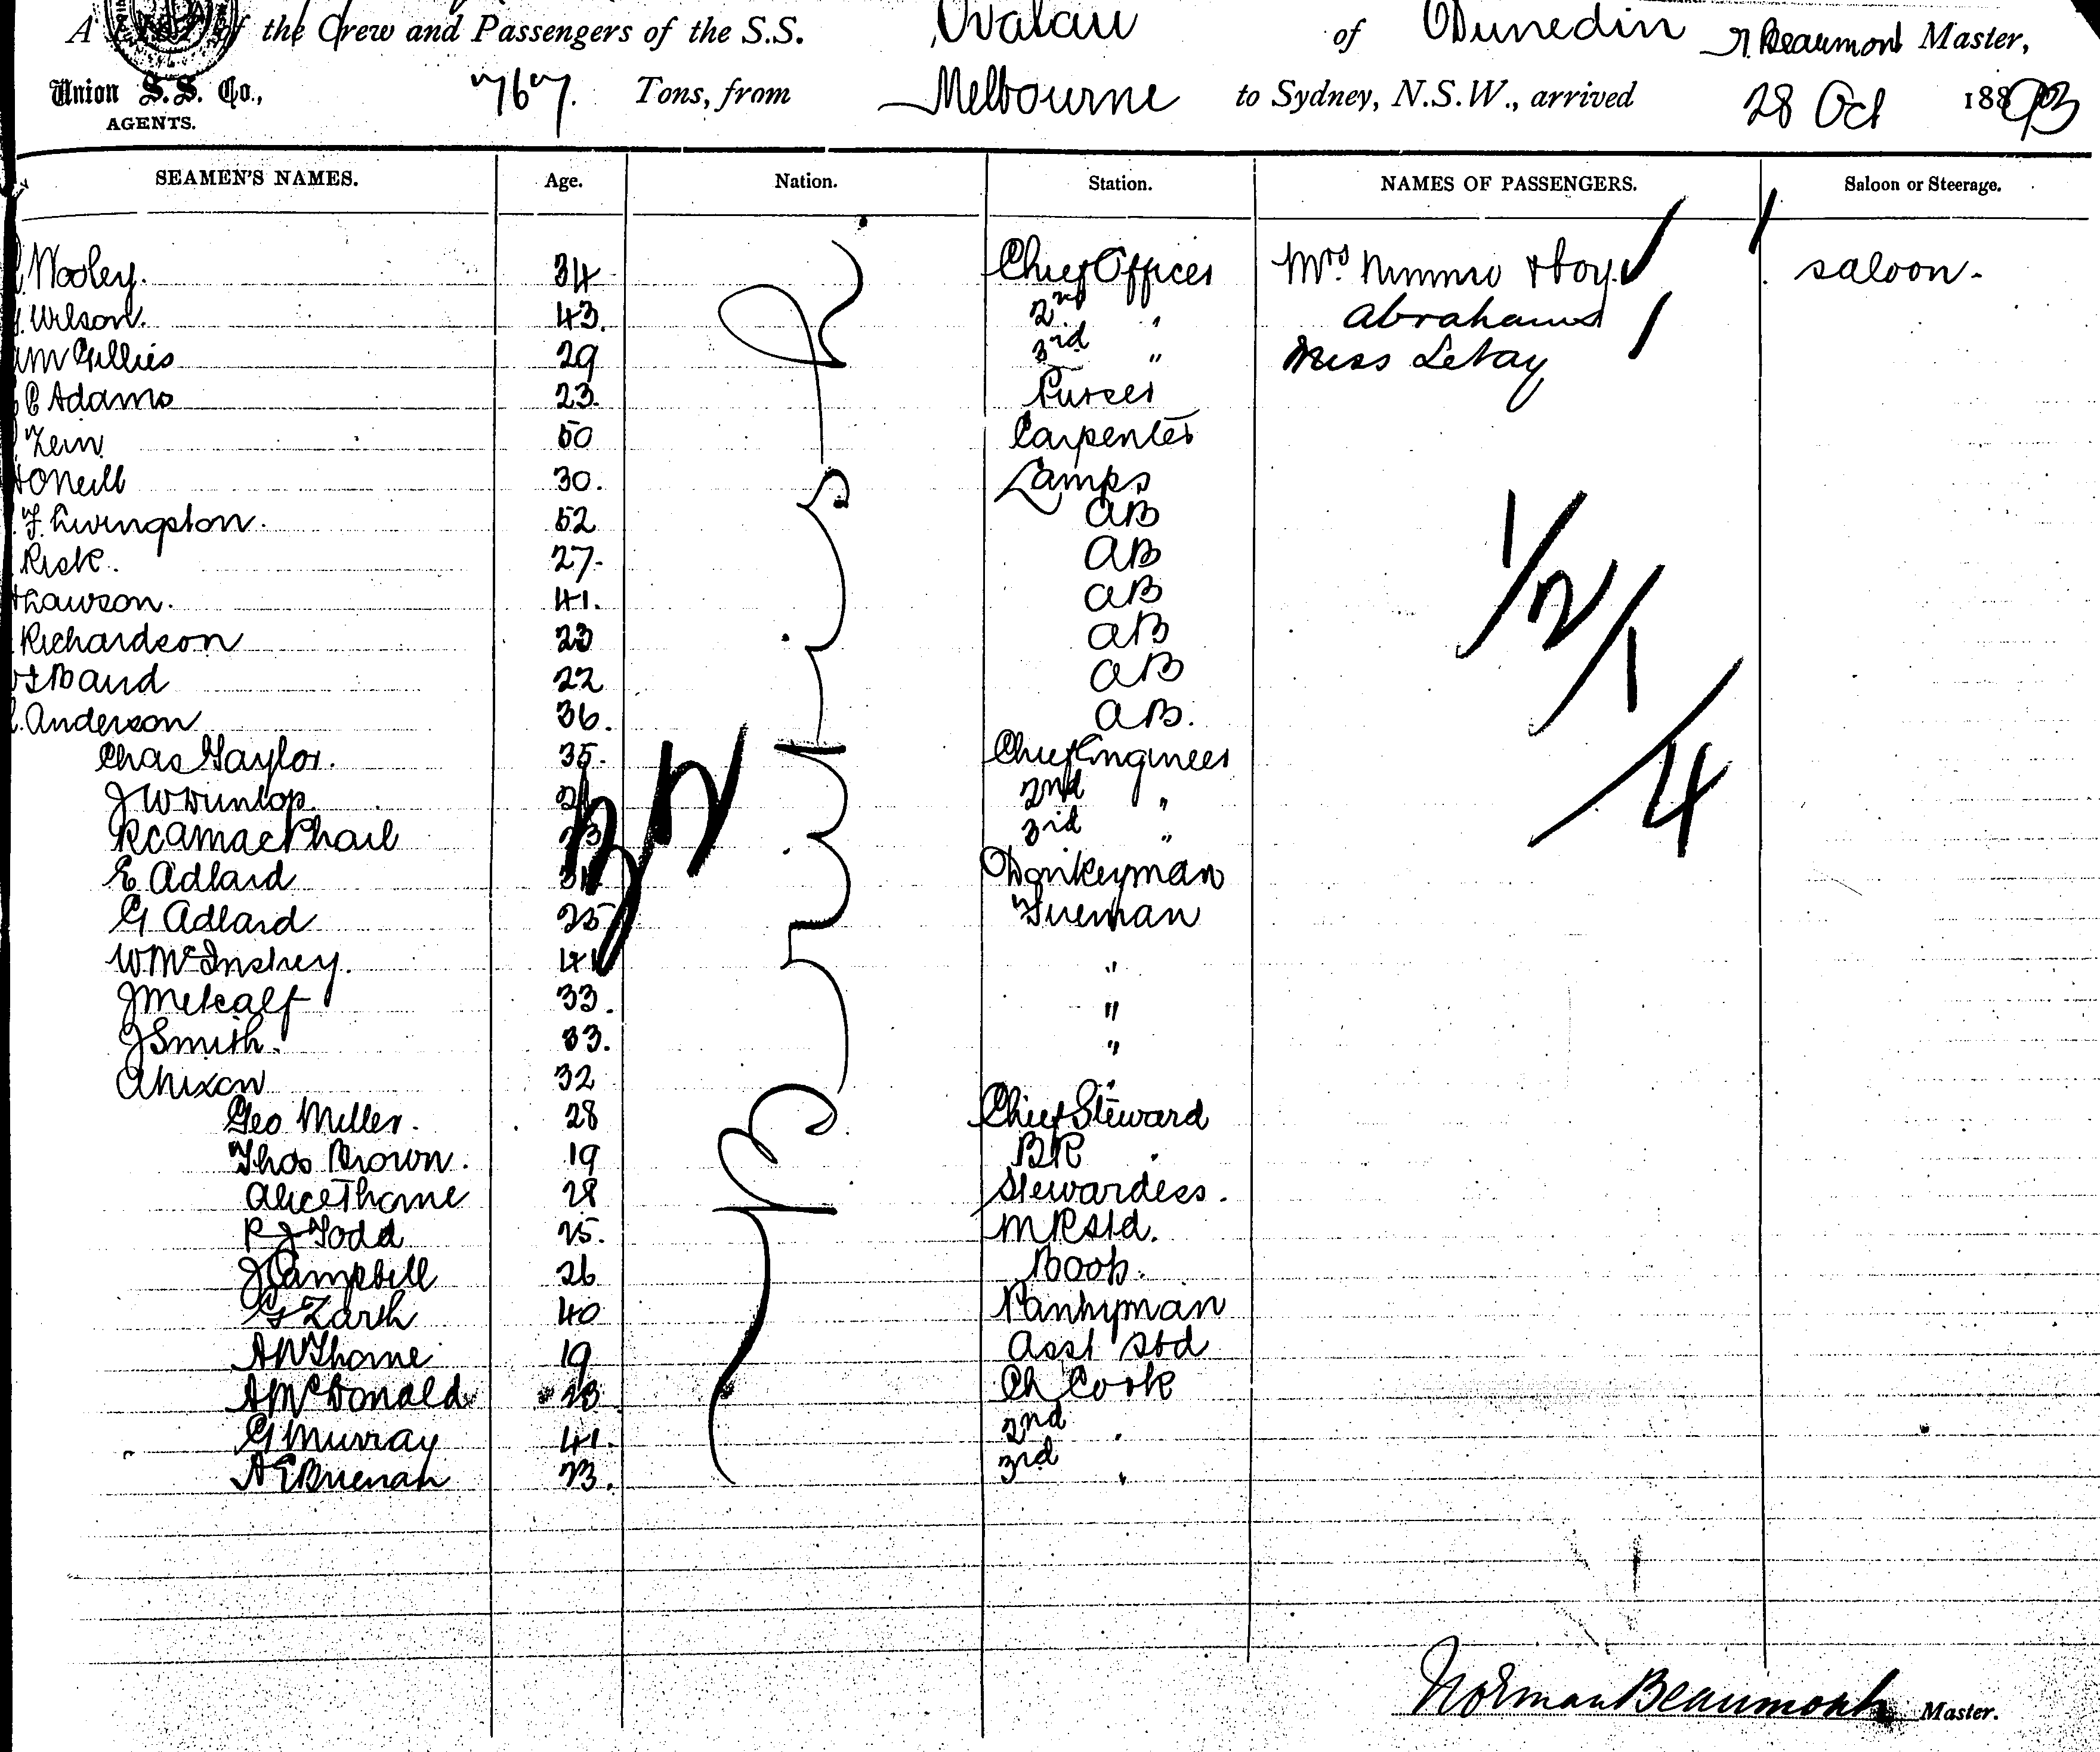 A List of the Crew and Passengers of the S.S. Ovalau of Dunedin N. Beaumont Master,
Union S.S. Co., AGENTS. 767. Tons, from Melbourne to Sydney, N.S.W., arrived 28 Oct 1893
SEAMEN'S NAMES. Age. Nation. Station. NAMES OF PASSENGERS. Saloon or Steerage.
Wooley. 34 Chief Officer Mrs Nimmo & boy. saloon.
Wilson. 43. 2nd " Abrahams
Gillies 29 3rd " Miss LeVay
C Adams 23. Purser
Zein 50 Carpenter
ONeill 30. Lamps
F. Livingston. 52 AB
Risk. 27. AB
Lawson. 41. AB
Richardson 23 AB
Band 22 AB
Anderson 36. AB.
Chas Taylor. 35. Chief Engineer
J W Dunlop. 2nd "
R C A MacPhail 3rd "
E Adlard Donkeyman
G Adlard 25 Fireman
W McInskey. 41 "
J Metcalf 33. "
J Smith. 33. "
A Nixon 32 "
Geo Miller. 28 Chief Steward
Thos Brown. 19 BR "
Alice Thorne 28 Stewardess.
R J Todd 25. M R Std.
J Campbell 26 Boots.
G Zarth 40 Pantryman
A W Thorne 19 Asst Std
A McDonald 23 Ch Cook
G Murray 41. 2nd "
A E Brienan 23. 3rd "
1/2/1/4
Norman Beaumont Master.